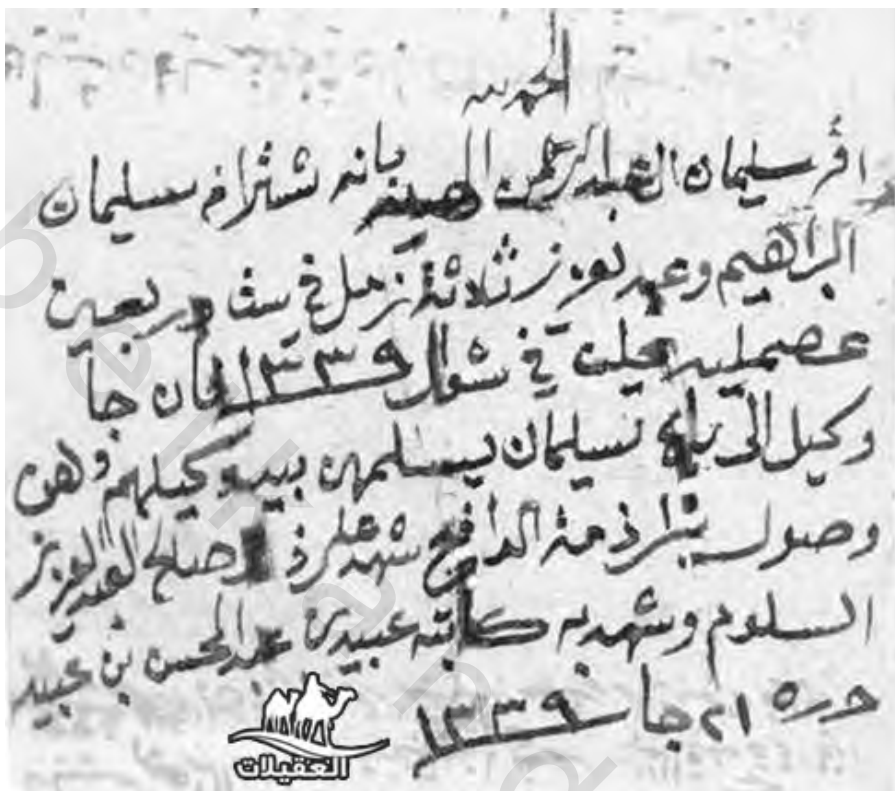 الحمد لله
اقر سليمان العبدالرحمن بانه شترا من سليمان
البراهيم وعبد لعزيز ثلاثة زمل في ست وربعين
عصمليه يحلن في شوال ١٣٣٩ فان جا
وكيل الى سليمان يسلمهن بيد وكيلهم وهن
وصول بذمة الدافع شهد على ذلك صالح العبدالعزيز
السلوم وشهد به كاتبه عبيده عبدالمحسن بن عبيد
حرره ٢١ جا ١٣٣٩
العقيلات